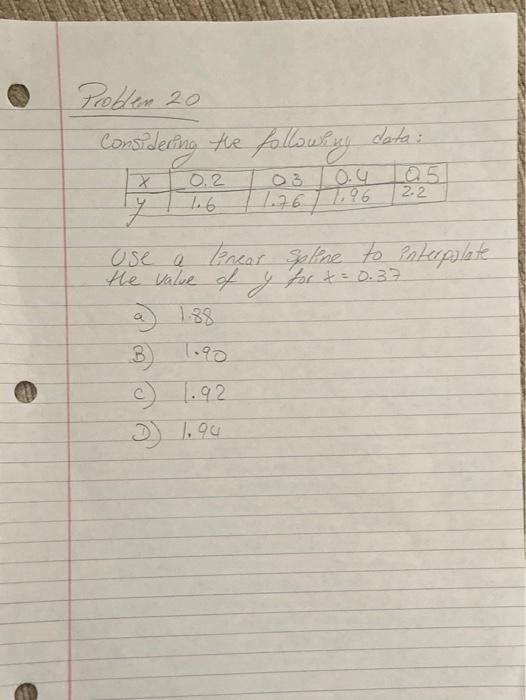 Problem 20
Considering the following data:
x 0.2 0.3 0.4 0.5
y 1.6 1.76 1.96 2.2
Use a linear spline to interpolate
the value of y for x = 0.37
a) 1.88
B) 1.90
c) 1.92
D) 1.94